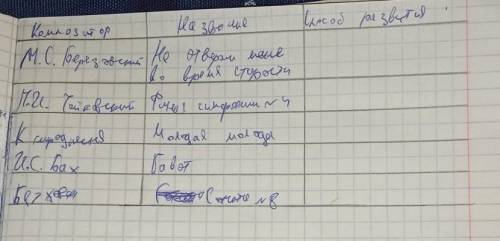 Композитор Название Способ развития
М.С. Березовский Не отвержи мене
во время старости
П.И. Чайковский Финал симфонии №4
К народная Молодая молода
И.С. Бах Гавот
Бетховен Соната №8